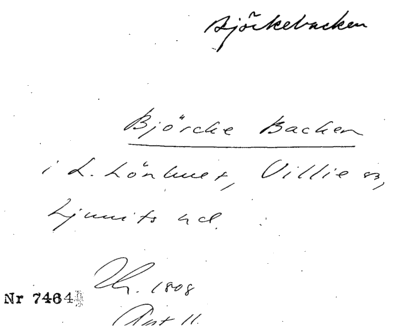 Björkebacken
Björcke Backen
i L. Lönhult, Villie sn,
Ljunits hd.
1808
Nr 7464
Akt 11.